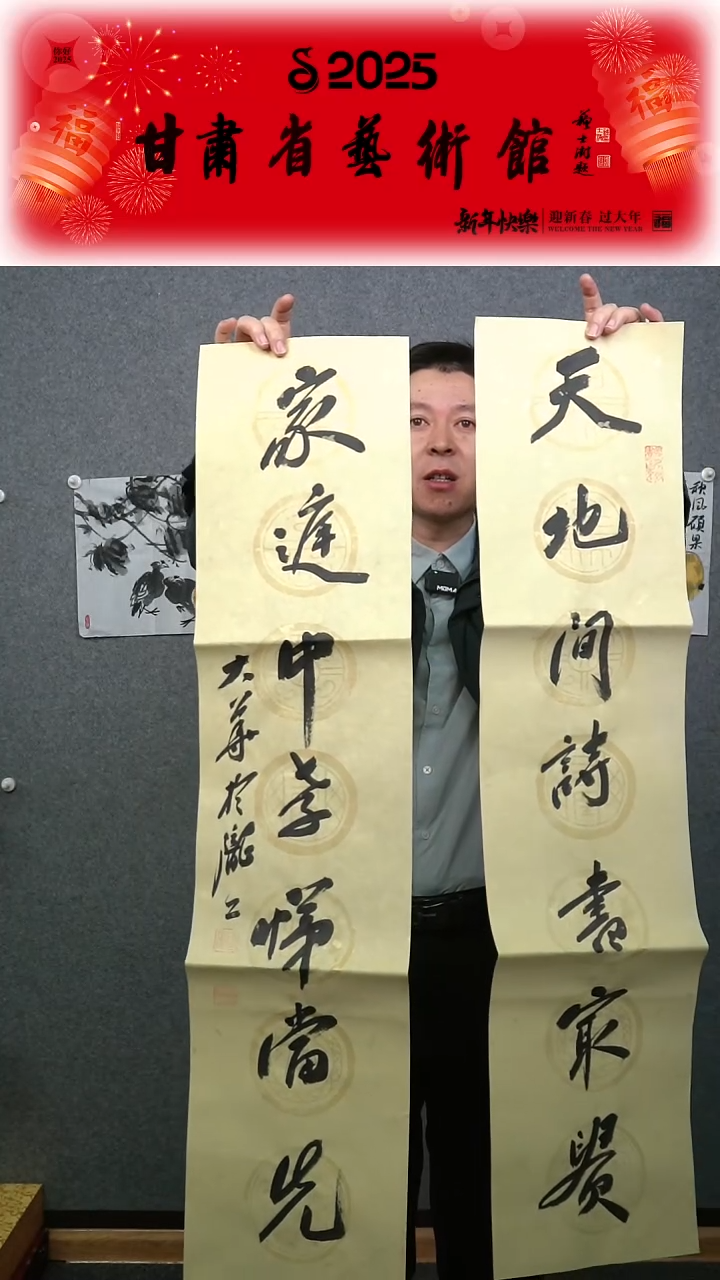 你好
2025
2025
甘肅省藝術館
福
福
新年快樂
迎新春 过大年
WELCOME THE NEW YEAR
福
天地间詩書冣貴
家庭中孝悌當先
大華於隴上
MOMA